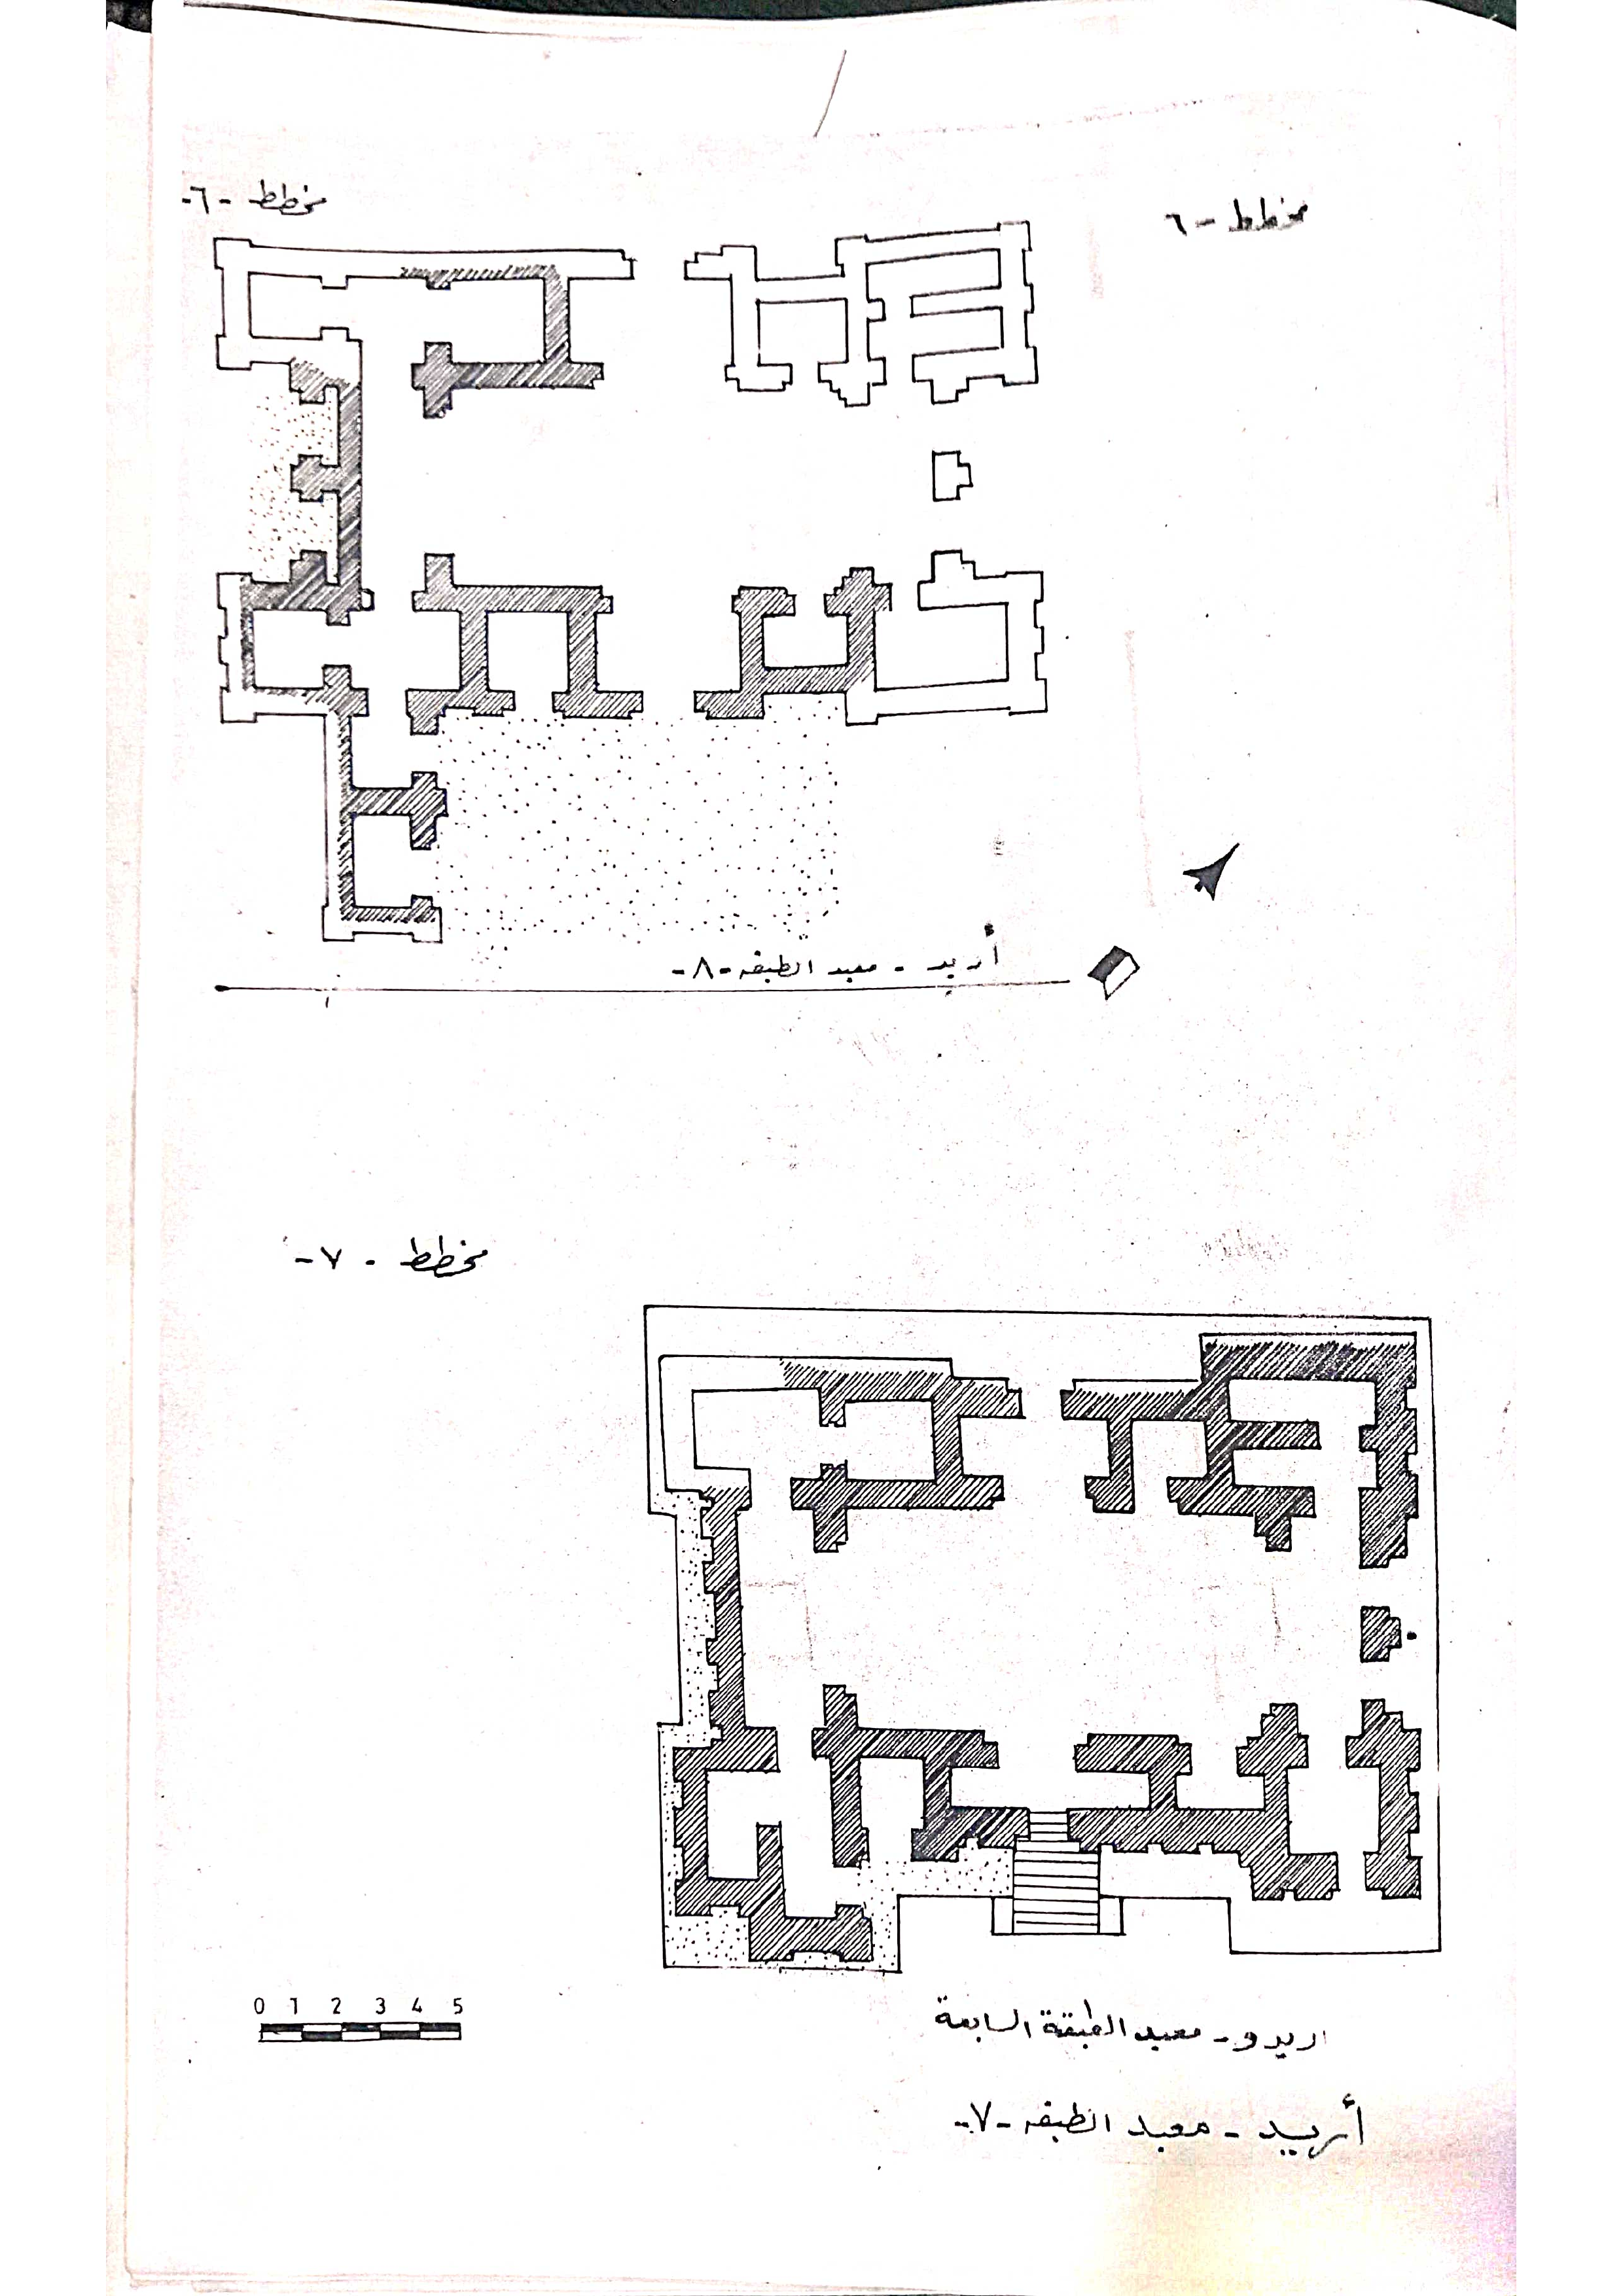 مخطط -٦-
مخطط -٦
أريد - معبد الطبقه -٨-
مخطط - ٧-
0 1 2 3 4 5
اريدو - معبد الطبقة السابعة
أريد - معبد الطبقه -٧-